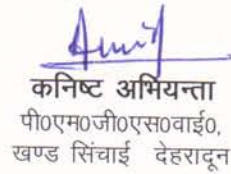 कनिष्ट अभियन्ता
पी०एम०जी०एस०वाई०,
खण्ड सिंचाई देहरादून